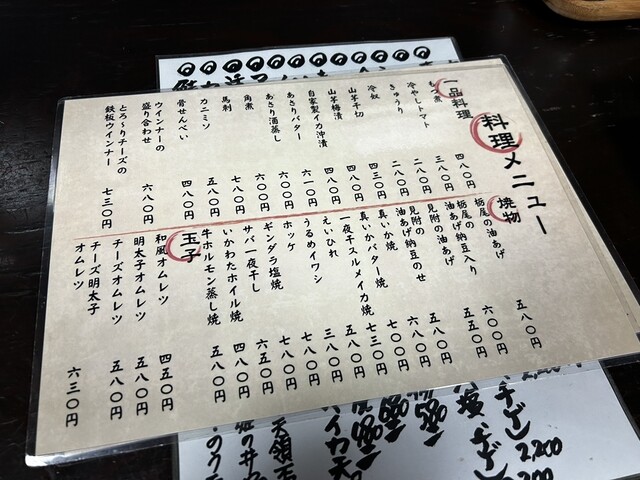 料理メニュー
一品料理
もつ煮 四八〇円
冷やしトマト 三八〇円
きゅうり 二八〇円
冷奴 二八〇円
山芋千切 四三〇円
山芋梅漬 四八〇円
自家製イカ沖漬 四八〇円
あさりバター 六一〇円
あさり酒蒸し 六〇〇円
角煮 六〇〇円
馬刺 七八〇円
カニミソ 五八〇円
骨せんべい 四八〇円
ウインナーの
盛り合わせ 六八〇円
とろ〜りチーズの
鉄板ウインナー 七三〇円
焼物
栃尾の油あげ 五八〇円
栃尾の
油あげ納豆入り 六〇〇円
見附の油あげ 五五〇円
見附の
油あげ納豆のせ 五八〇円
真いか焼 六八〇円
真いかバター焼 七〇〇円
一夜干スルメイカ焼 七三〇円
えいひれ 五八〇円
うるめイワシ 三八〇円
ホッケ 七八〇円
ギンダラ塩焼 七八〇円
サバ一夜干し 六五〇円
いかわたホイル焼 四八〇円
牛ホルモン蒸し焼 五八〇円
玉子
和風オムレツ 四五〇円
明太子オムレツ 五八〇円
チーズオムレツ 五八〇円
チーズ明太子
オムレツ 六三〇円
2,200
580
イカ天